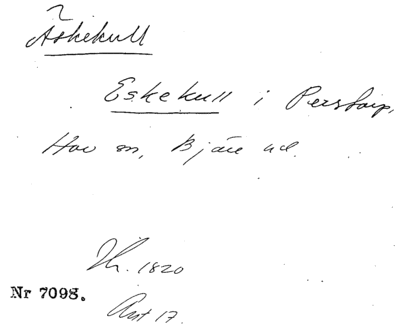 Äskekull
Eskekull i Perstorp,
Hov sn, Bjäre hd.
1820
Nr 7098.
17.